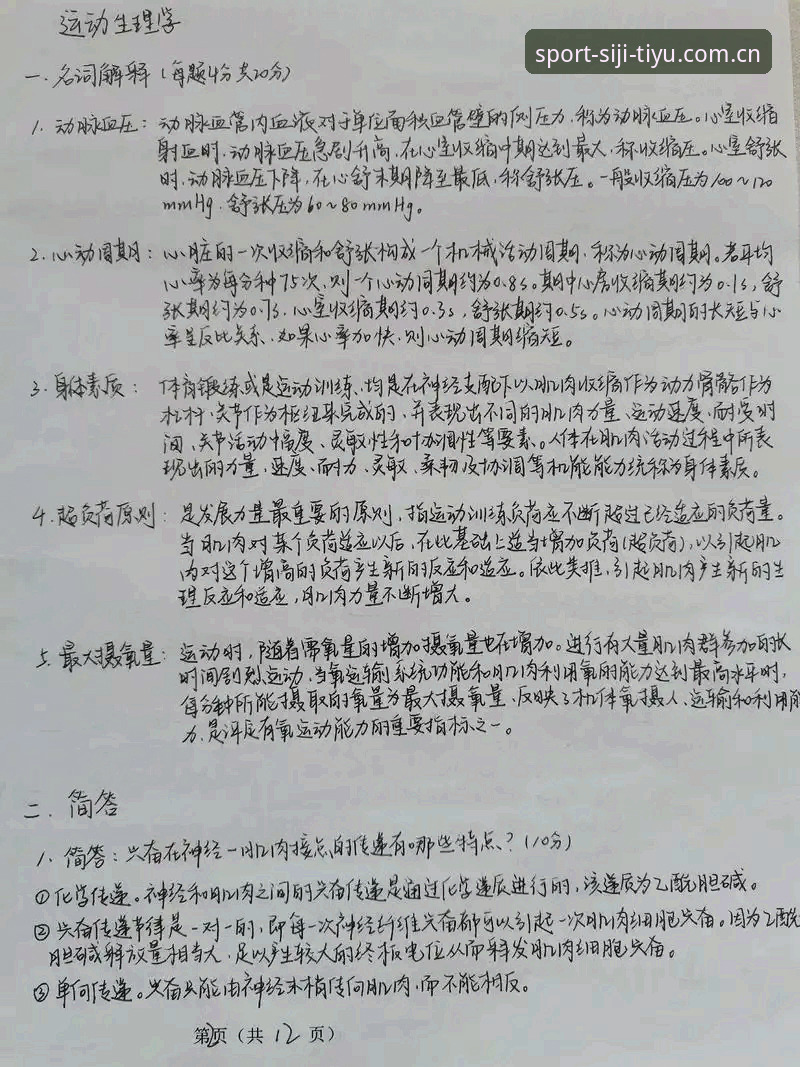 sport-siji-tiyu.com.cn
运动生理学
一、名词解释（每题4分共20分）
1. 动脉血压：动脉血管内血液对于单位面积血管壁的侧压力，称为动脉血压。心室收缩
射血时，动脉血压急剧升高，在心室收缩中期达到最大，称收缩压。心室舒张
时，动脉血压下降，在心舒末期降至最低，称舒张压。一般收缩压为100~120
mmHg，舒张压为60~80mmHg。
2. 心动周期：心脏的一次收缩和舒张构成一个机械活动周期，称为心动周期。若平均
心率为每分钟75次，则一个心动周期约为0.8s。其中心房收缩期约为0.1s，舒
张期约为0.7s，心室收缩期约0.3s，舒张期约0.5s。心动周期的长短与心
率呈反比关系，如果心率加快，则心动周期缩短。
3. 身体素质：体育锻练或是运动训练，均是在神经支配下以肌肉收缩作为动力骨骼作为
杠杆，关节作为枢纽来完成的，并表现出不同的肌肉力量、运动速度、耐受时
间、关节活动幅度、灵敏性和协调性等要素。人体在肌肉活动过程中所表
现出的力量、速度、耐力、灵敏、柔韧及协调等机能能力统称为身体素质。
4. 超负荷原则：是发展力量最重要的原则，指运动训练负荷应不断超过已经适应的负荷量。
当肌肉对某个负荷适应以后，在此基础上适当增加负荷(超负荷)，以引起肌
肉对这个增高的负荷产生新的反应和适应。依此类推，引起肌肉产生新的生
理反应和适应，肌肉力量不断增大。
5. 最大摄氧量：运动时，随着需氧量的增加摄氧量也在增加。进行有大量肌肉群参加的长
时间剧烈运动，当氧运输系统功能和肌肉利用氧的能力达到最高水平时，
每分钟所能摄取的氧量为最大摄氧量，反映了机体氧摄入、运输和利用能
力，是评定有氧运动能力的重要指标之一。
二、简答
1. 简答：兴奋在神经—肌肉接点的传递有哪些特点？（10分）
①化学传递。神经和肌肉之间的兴奋传递是通过化学递质进行的，该递质为乙酰胆碱。
②兴奋传递节律是一对一的，即每一次神经纤维兴奋都可以引起一次肌肉细胞兴奋。因为乙酰
胆碱释放量相当大，足以产生较大的终板电位从而释发肌肉细胞兴奋。
③单向传递。兴奋只能由神经末梢传向肌肉，而不能相反。
第2页（共12页）